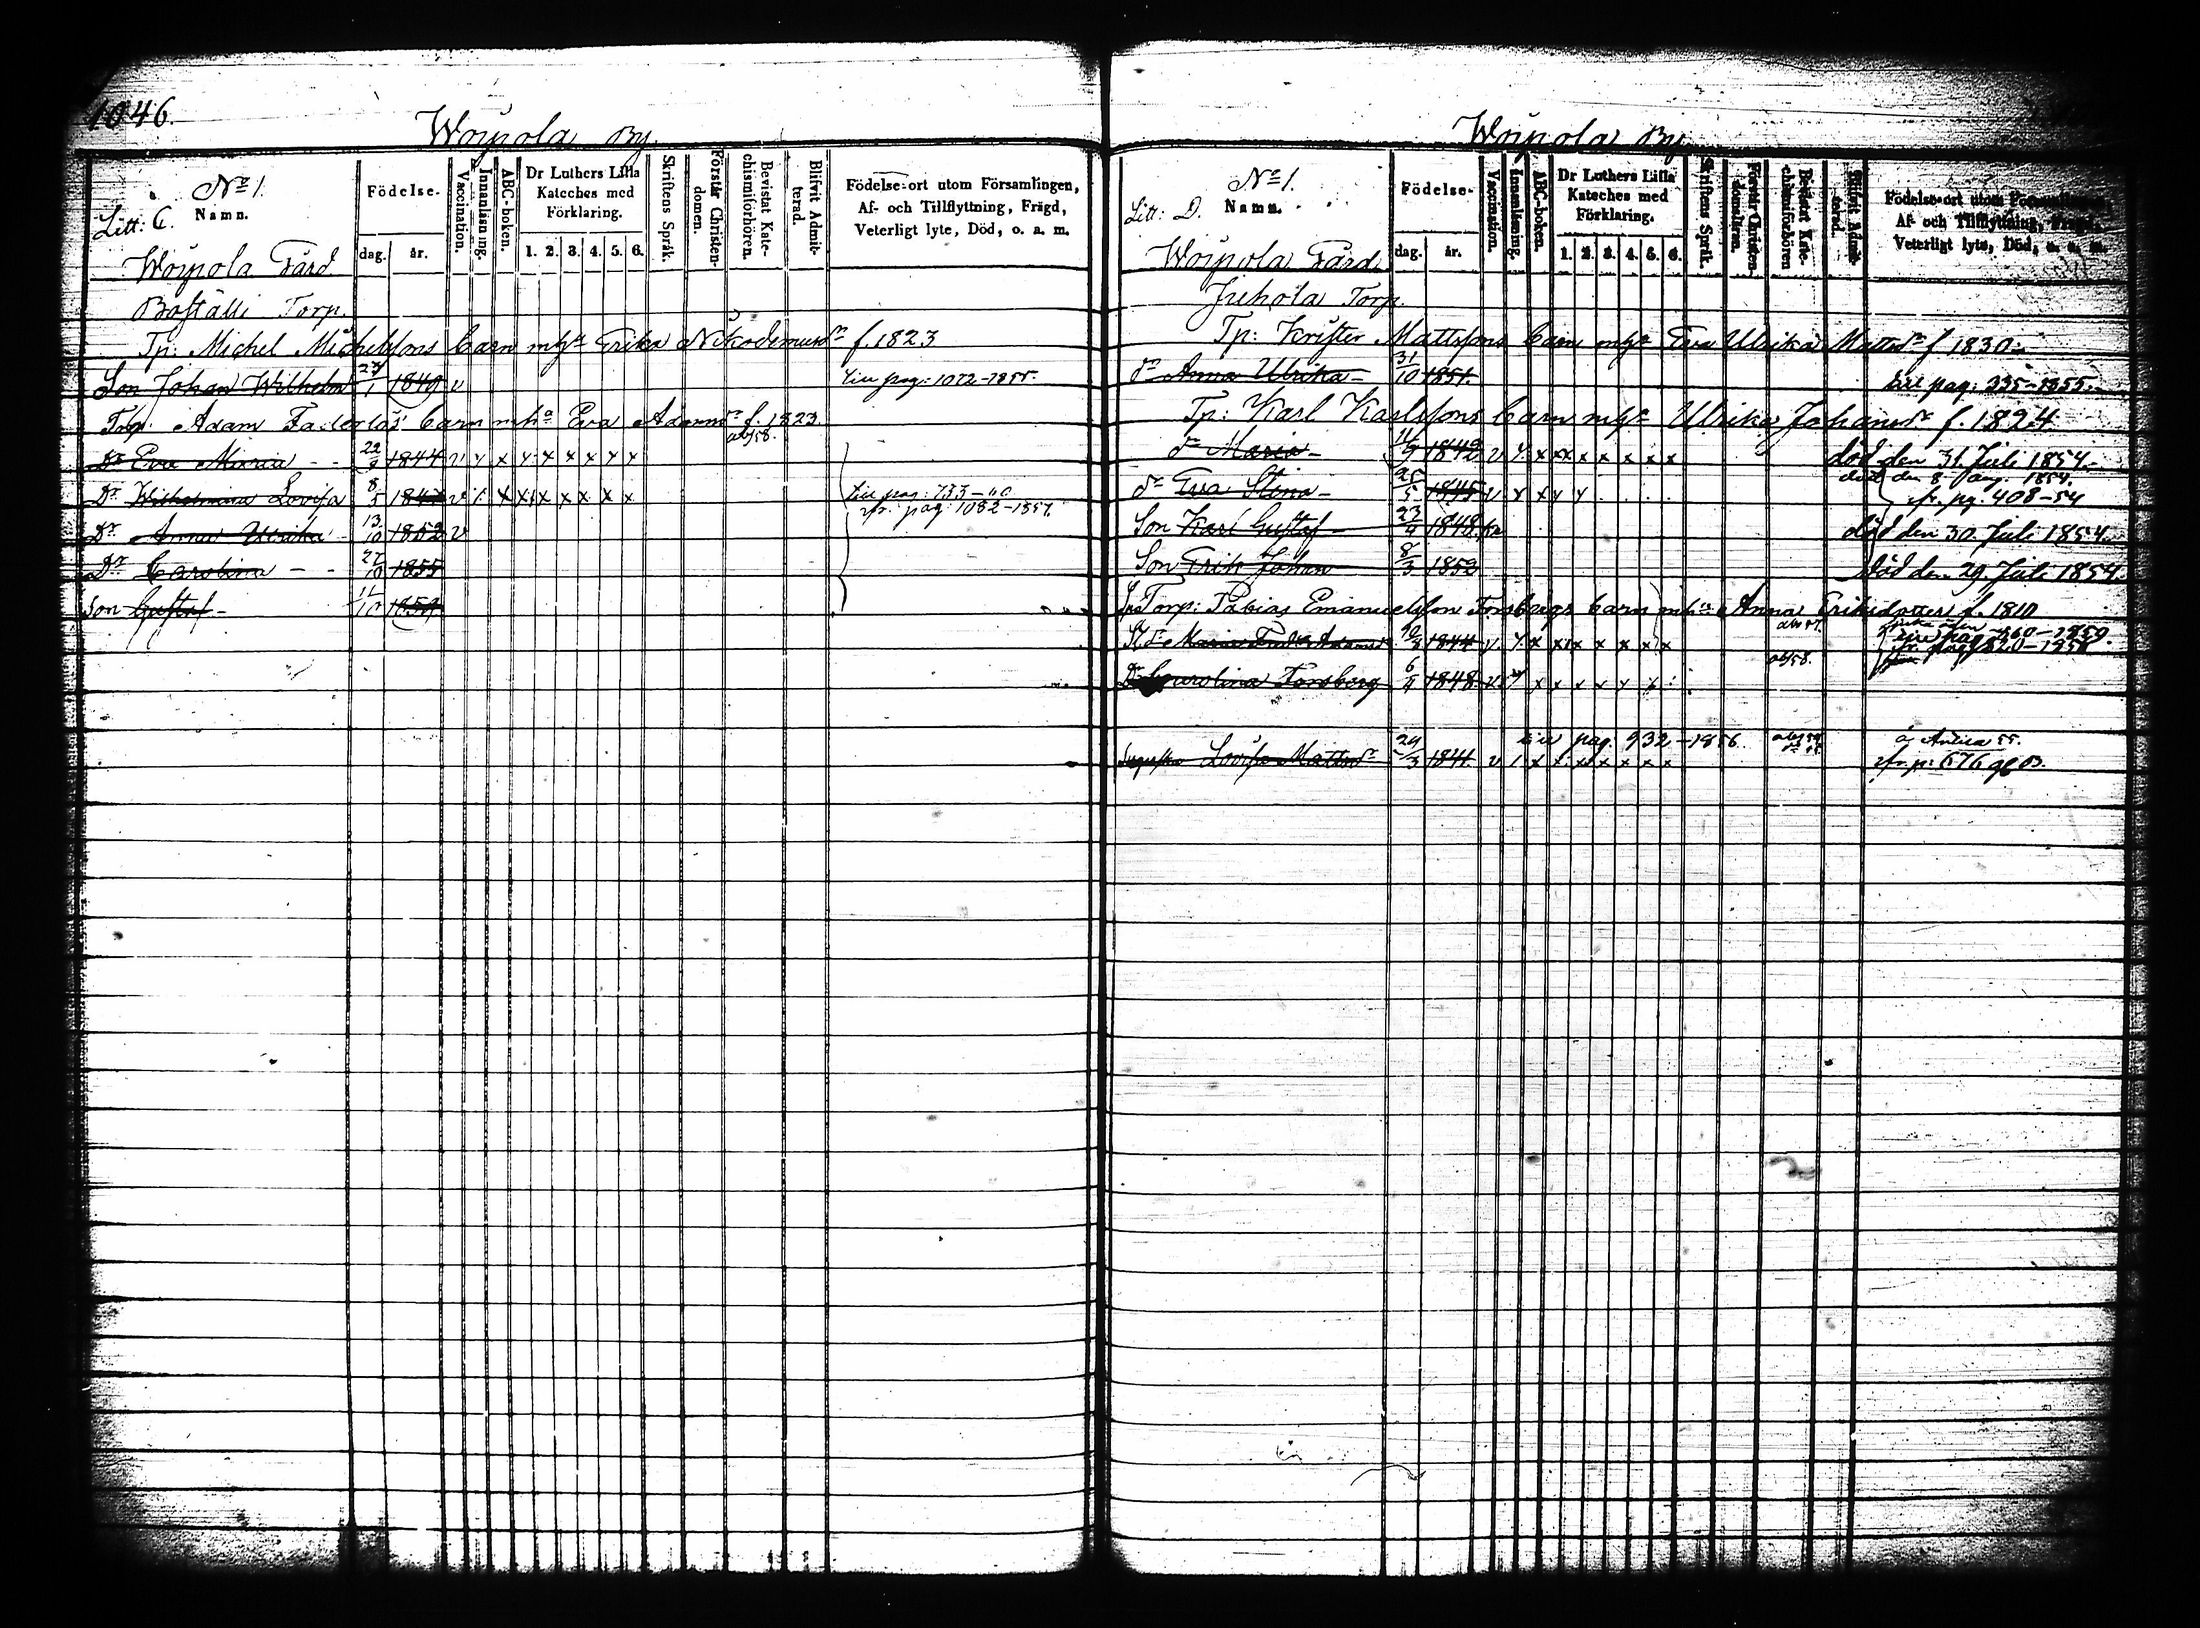 1046.
Woipola By.
No 1.
Litt: C.
Namn.
Födelse-
dag. år.
Vaccination.
Innanläsning.
ABC-boken.
Dr Luthers Lilla Kateches med Förklaring.
1. 2. 3. 4. 5. 6.
Skriftens Språk.
Förstår Christendomen.
Bevistat Katechismiförhören.
Blifvit Admitterad.
Födelse-ort utom Församlingen,
Af- och Tillflyttning, Frägd,
Veterligt lyte, Död, o. a. m.
Woipola Gård
Boställi Torp.
Tp: Michel Michelssons barn mha Erika Nikodemusdr f. 1823
Son Johan Wilhelm 27/1 1849 v
Torp. Adam Faderlös' barn mha Eva Adamsdr f. 1823
Dr Eva Maria 22/9 1844 v x x x x x x x x abs 58.
Dr Wilhelmina Lovisa 8/5 v x x x x x x x
Dr Anna Ulrika 13/10 1852 v
Dr Carolina 27/10 1855
Son Gustaf 11/10 1859
Woipola By.
No 1.
Litt: D.
Namn.
Födelse-
dag. år.
Vaccination.
Innanläsning.
ABC-boken.
Dr Luthers Lilla Kateches med Förklaring.
1. 2. 3. 4. 5. 6.
Skriftens Språk.
Förstår Christendomen.
Bevistat Katechismiförhören
Blifvit Admitterad.
Födelse-ort utom Församlingen,
Af- och Tillflyttning, Frägd,
Veterligt lyte, Död, o. a. m.
Woipola Gård.
Juhola Torp.
Tp: Krister Mattssons barn mha Eva Ulrika Mattsdr f 1830
dr Anna Ulrika 31/10 1851. pag: 335-1855.
Tp: Karl Karlssons barn mha Ulrika Johansdr f. 1824
dr Maria 1842 v x x x x x x x x död den 31 Juli 1854
dr Eva Stina 25/5 1845 v x x x död den 8 Aug. 1854.
fr. pg. 408-54
Son Karl Gustaf 23/4 1848. död den 30 Juli 1854.
Son Erik Johan 8/3 1852 död den 29. Juli 1854.
Torp: Tobias Emanuelsson Forsbergs barn mha Anna Eriksdotter f. 1810
1844 v. x x x x x x x x
Dr Carolina Forsberg 6/4 1848 v. x x x x x x abs 58.
pag. 932-1856
Lovisa Mattsdr 29/3 1841 v 1 x x x x x x x